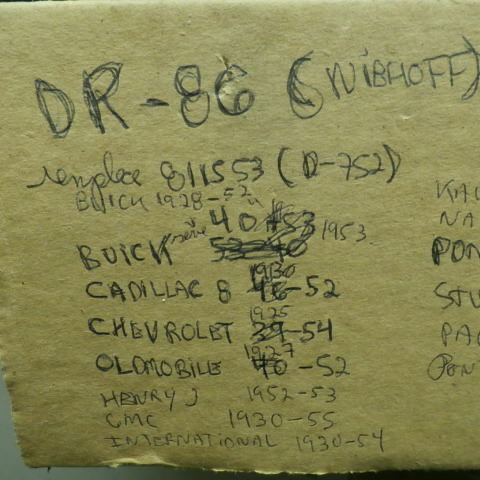 DR-86 (NIBHOFF)
remplace 811553 (D-752)
BUICK 1928-52
BUICK série 40 1953
CADILLAC 8 1930-52
CHEVROLET 1925-54
OLDMOBILE 1927-52
HENRY J 1952-53
GMC 1930-55
INTERNATIONAL 1930-54
KAI
NA
PON
STU
PA
PON